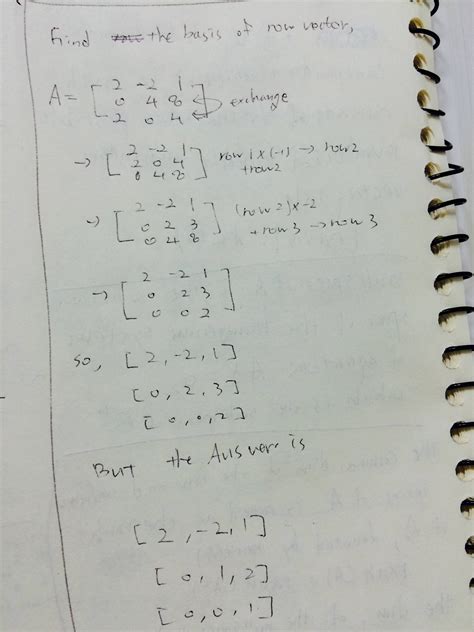 Find the basis of row vector,
A = [ 2 -2 1
0 4 8
2 0 4 ] exchange
→ [ 2 -2 1
2 0 4
0 4 8 ] row 1 x (-1) → row2
+row2
→ [ 2 -2 1
0 2 3
0 4 8 ] (row 2) x -2
+ row 3 → row 3
→ [ 2 -2 1
0 2 3
0 0 2 ]
so, [2, -2, 1]
[0, 2, 3]
[0, 0, 2]
But the Answer is
[2, -2, 1]
[0, 1, 2]
[0, 0, 1]